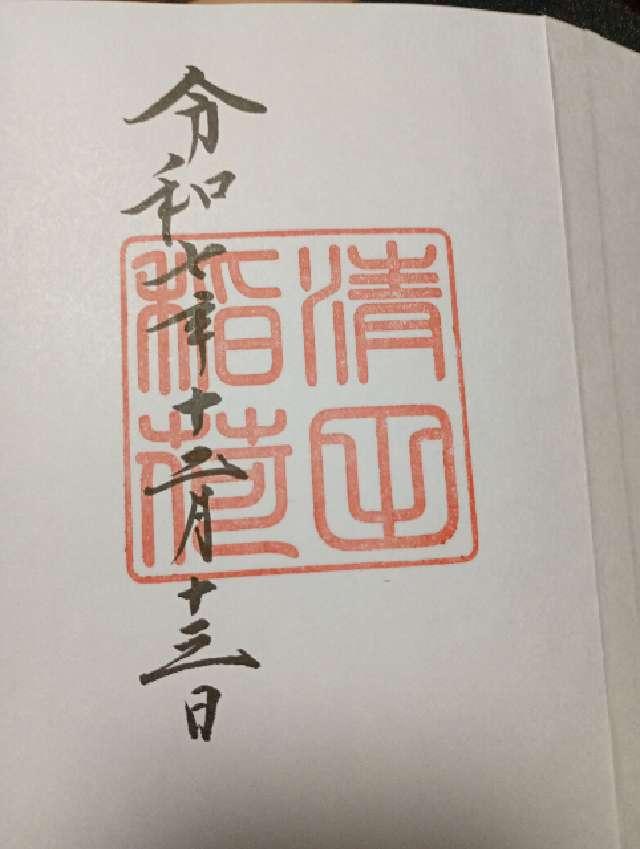 清
稲荷
令和七年十二月十三日